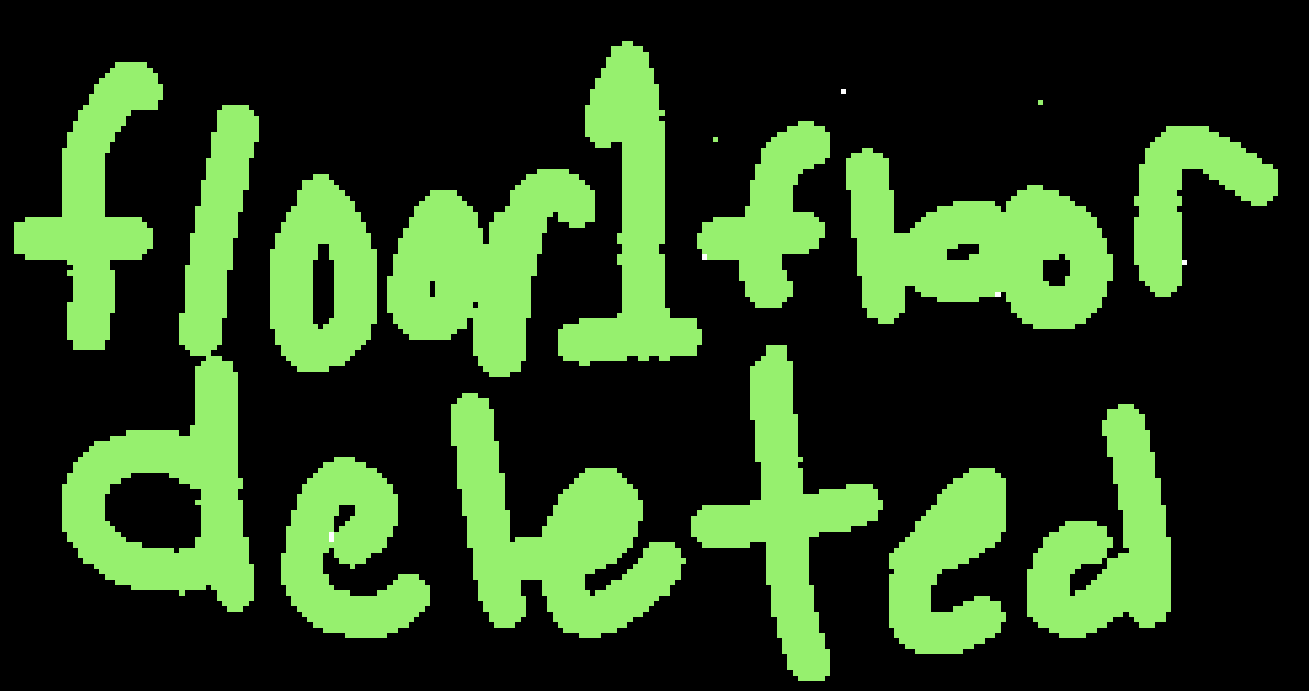 floor1 floor
deleted